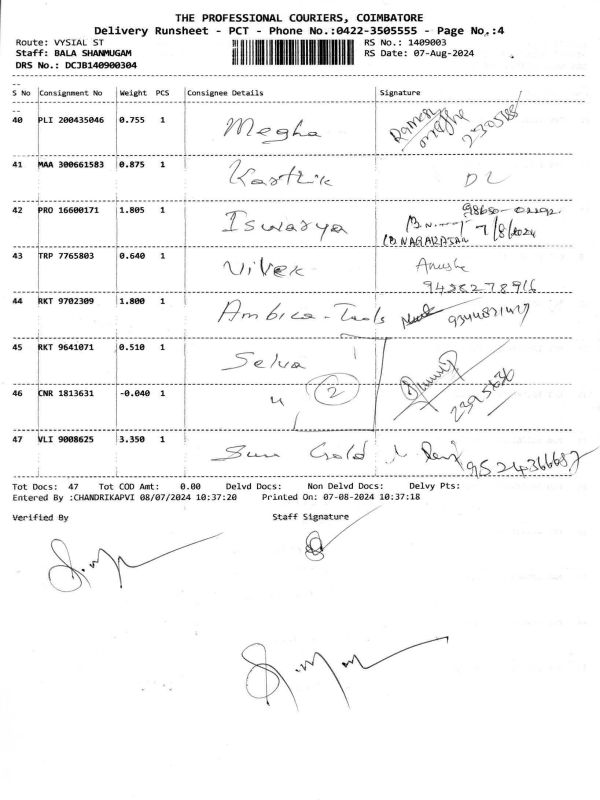 THE PROFESSIONAL COURIERS, COIMBATORE
Delivery Runsheet - PCT - Phone No.:0422-3505555 - Page No.:4
Route: VYSIAL ST RS No.: 1409003
Staff: BALA SHANMUGAM RS Date: 07-Aug-2024
DRS No.: DCJB140900304
S No Consignment No Weight PCS Consignee Details Signature
40 PLI 200435046 0.755 1 Megha
41 MAA 300661583 0.875 1 Karthik DL
42 PRO 16600171 1.805 1 Iswarya 7/8/2024
43 TRP 7765803 0.640 1 Vivek
44 RKT 9702309 1.800 1 Ambica
45 RKT 9641071 0.510 1 Selva
46 CNR 1813631 -0.040 1 2
47 VLI 9008625 3.350 1 Sun Gold
Tot Docs: 47 Tot COD Amt: 0.00 Delvd Docs: Non Delvd Docs: Delvy Pts:
Entered By :CHANDRIKAPVI 08/07/2024 10:37:20 Printed On: 07-08-2024 10:37:18
Verified By Staff Signature